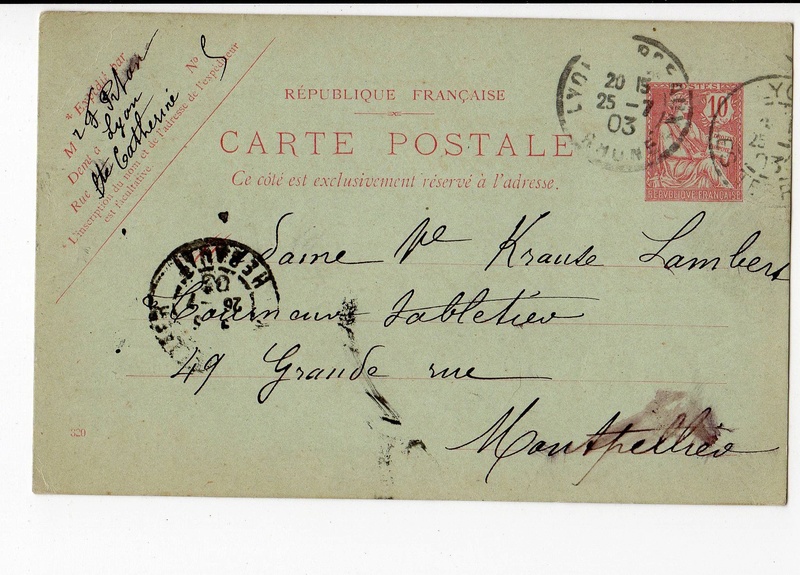 * Expédié par
M
Demt à Lyon
Rue Ste Catherine No 5
* L'inscription du nom et de l'adresse de l'expéditeur
est facultative.
RÉPUBLIQUE FRANÇAISE
CARTE POSTALE
Ce côté est exclusivement réservé à l'adresse.
LYON
20 15
25 - 7
03
RHONE
POSTES
10
RÉPUBLIQUE FRANÇAISE
HERAULT
26 - 7
03
dame Ve Krause Lambert
49 Grande rue
Montpellier
820